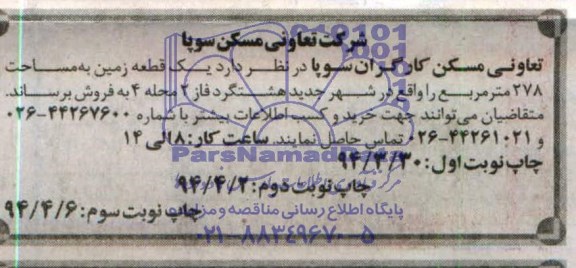 شرکت تعاونی مسکن سوپا
تعاونی مسکن کارگران سوپا در نظر دارد یک قطعه زمین به‌مساحت
۲۷۸ مترمربع را واقع در شهر جدید هشتگرد فاز ۲ محله ۴ به فروش برساند.
متقاضیان می‌توانند جهت خرید و کسب اطلاعات بیشتر با شماره ۴۴۲۶۷۶۰۰-۰۲۶
و ۴۴۲۶۱۰۲۱-۰۲۶ تماس حاصل نمایند. ساعت کار: ۸ الی ۱۴
ParsNamadData
چاپ نوبت اول: ۹۴/۳/۳۰
چاپ نوبت دوم: ۹۴/۴/۲
چاپ نوبت سوم: ۹۴/۴/۶
پایگاه اطلاع رسانی مناقصه و مزایده
۰۲۱-۸۸۳۴۹۶۷۰-۵